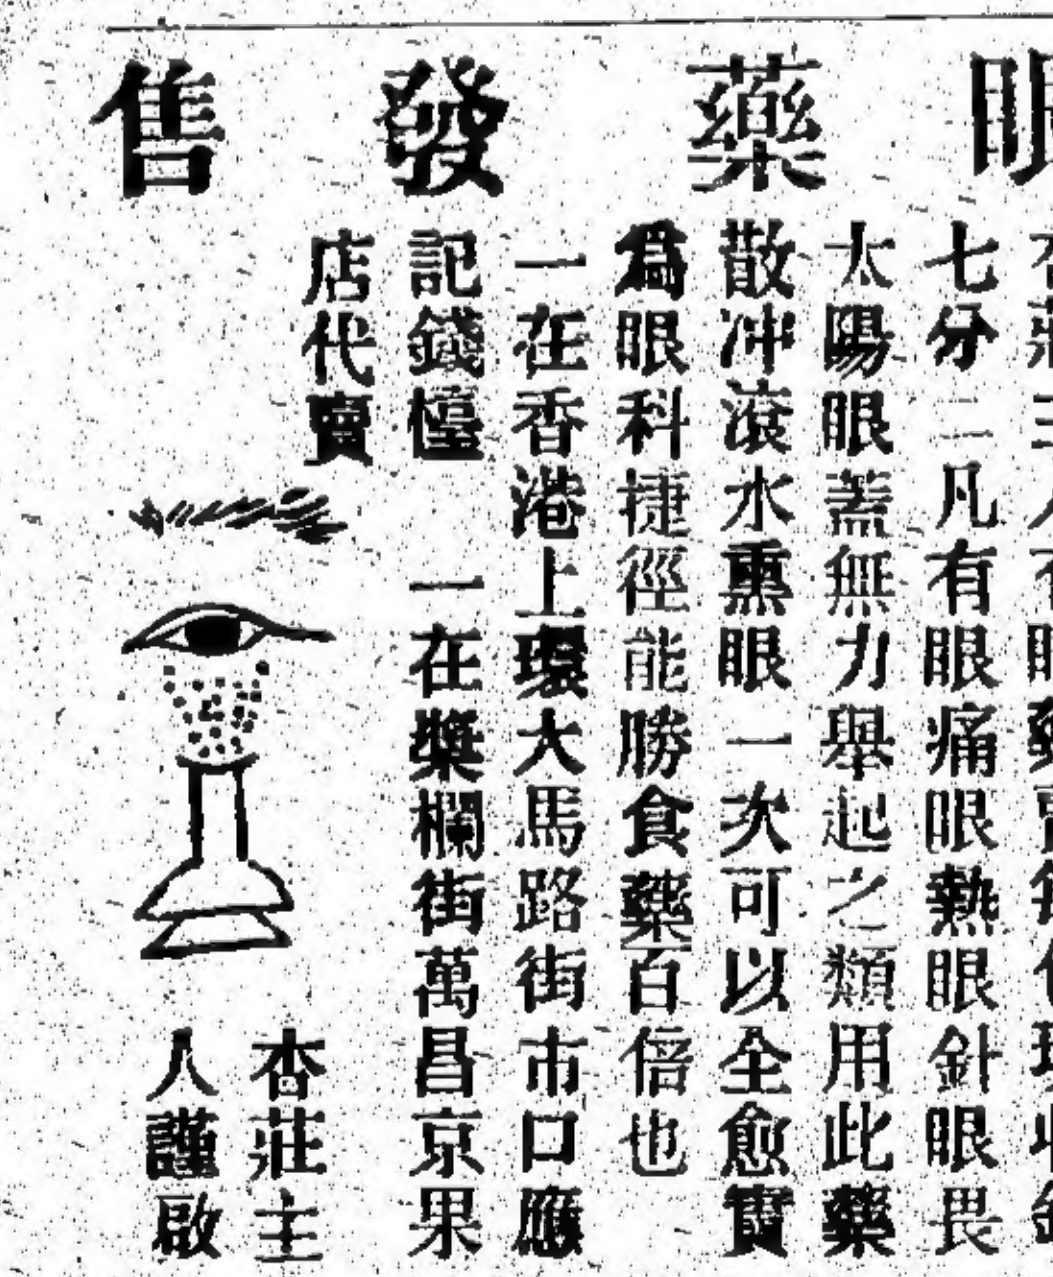 眼藥發售
七分二凡有眼痛眼熱眼針眼畏
太陽眼蓋無力舉起之類用此藥
散冲滚水熏眼一次可以全愈實
爲眼科捷徑能勝食藥百倍也
一在香港上環大馬路街市口應
記錢檯 一在槳欄街萬昌京果
店代賣
杏莊主
人謹啟